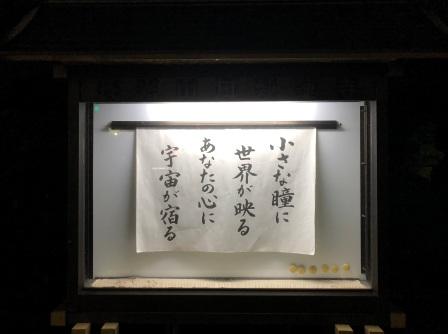 小さな瞳に
世界が映る
あなたの心に
宇宙が宿る